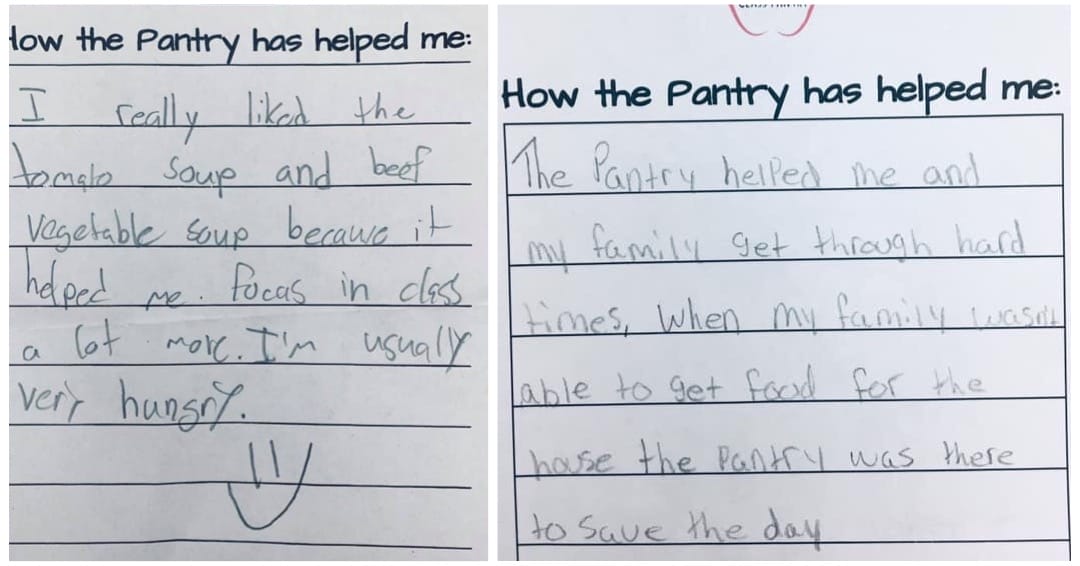 How the Pantry has helped me:
I really liked the
tomato soup and beef
Vegetable soup because it
helped me. focus in class
a lot more. I'm usually
very hungry.
How the Pantry has helped me:
The Pantry helped me and
my family get through hard
times, when my family wasn't
able to get food for the
house the Pantry was there
to save the day